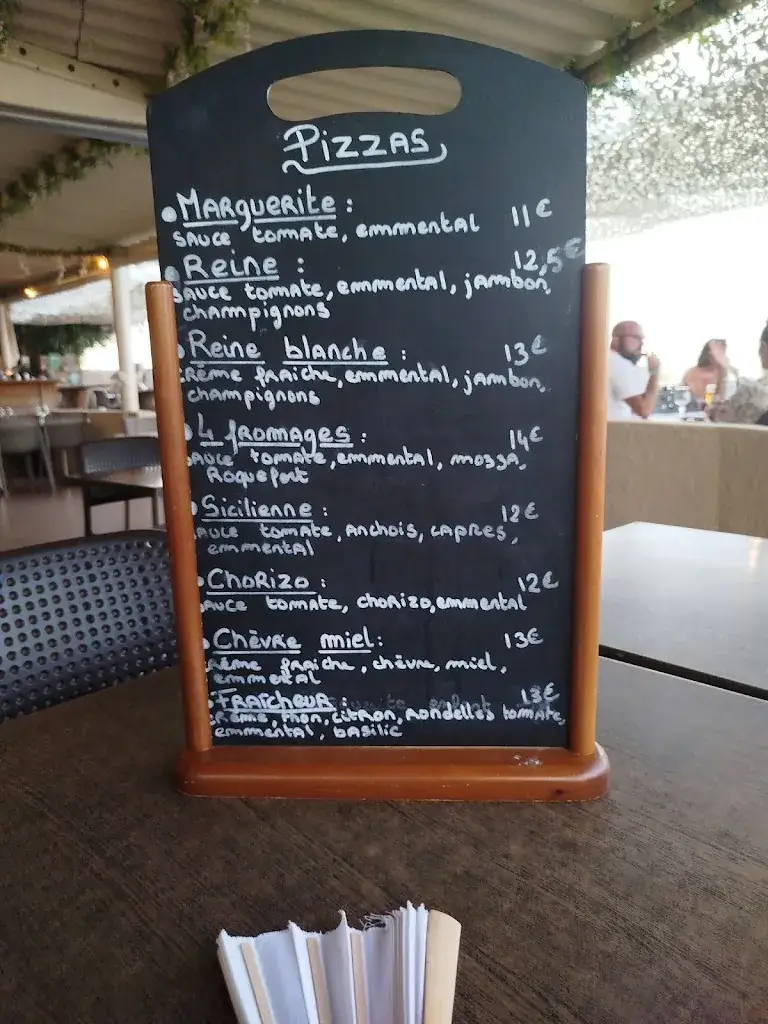 Pizzas
• Marguerite : 11€
sauce tomate, emmmental
• Reine : 12,5€
sauce tomate, emmmental, jambon,
champignons
• Reine blanche : 13€
crème fraiche, emmmental, jambon,
champignons
• 4 fromages : 14€
sauce tomate, emmmental, mozza,
Roquefort
• Sicilienne : 12€
sauce tomate, anchois, capres,
emmmental
• Chorizo : 12€
sauce tomate, chorizo, emmmental
• Chèvre miel : 13€
crème fraiche, chèvre, miel,
emmmental
• Fraîcheur : 13€
crème, thon, citron, rondelles tomate,
emmmental, basilic